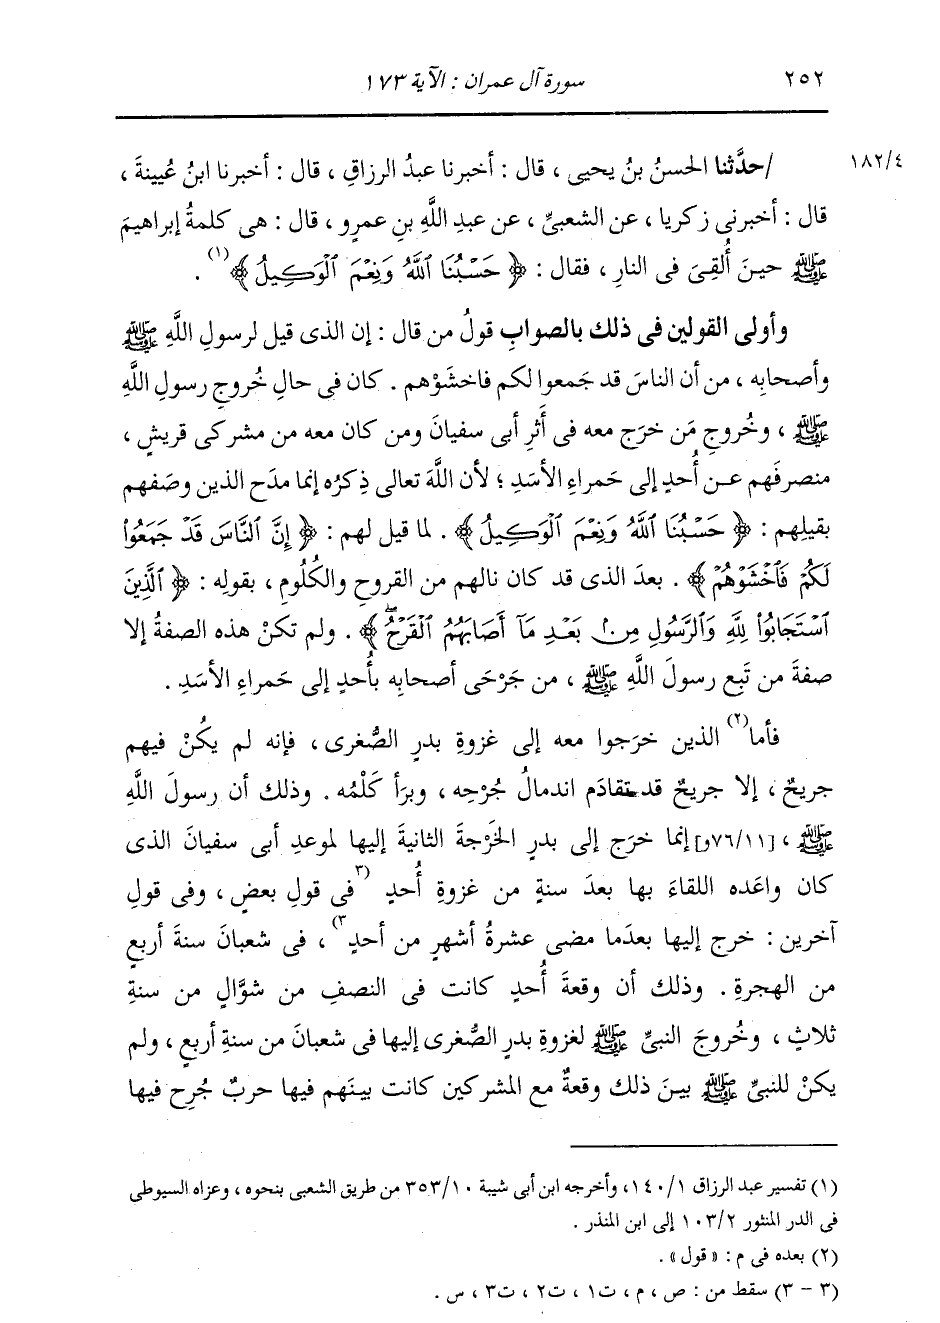 ٢٥٢ سورة آل عمران : الآية ١٧٣
١٨٢/٤ /حدَّثنا الحسنُ بنُ يحيى ، قال : أخبرنا عبدُ الرزاقِ ، قال : أخبرنا ابنُ عُيينةَ ،
قال : أخبرنى زكريا ، عن الشعبىِّ ، عن عبدِ اللَّهِ بنِ عمرٍو ، قال : هى كلمةُ إبراهيمَ
ﷺ حينَ أُلقِىَ فى النارِ ، فقال : ﴿ حَسْبُنَا ٱللَّهُ وَنِعْمَ ٱلْوَكِيلُ ﴾(١) .
وأولى القولين فى ذلك بالصوابِ قولُ من قال : إن الذى قيل لرسولِ اللَّهِ ﷺ
وأصحابِه ، من أن الناسَ قد جَمعوا لكم فاخشَوْهم . كان فى حالِ خُروجِ رسولِ اللَّهِ
ﷺ ، وخُروجِ مَن خرَج معه فى أَثَرِ أبى سفيانَ ومن كان معه من مشركى قريشٍ ،
منصرفَهم عن أُحدٍ إلى حَمراءِ الأسَدِ ؛ لأن اللَّهَ تعالى ذِكرُه إنما مدَح الذين وصَفهم
بقيلِهم : ﴿ حَسْبُنَا ٱللَّهُ وَنِعْمَ ٱلْوَكِيلُ ﴾ . لما قيل لهم : ﴿ إِنَّ ٱلنَّاسَ قَدْ جَمَعُوا۟
لَكُمْ فَٱخْشَوْهُمْ ﴾ . بعدَ الذى قد كان نالهم من القروحِ والكُلُومِ ، بقولِه : ﴿ ٱلَّذِينَ
ٱسْتَجَابُوا۟ لِلَّهِ وَٱلرَّسُولِ مِنۢ بَعْدِ مَآ أَصَابَهُمُ ٱلْقَرْحُ ﴾ . ولم تكنْ هذه الصفةُ إلا
صفةَ من تَبِع رسولَ اللَّهِ ﷺ ، من جَرْحَى أصحابِه بأُحدٍ إلى حَمراءِ الأسَدِ .
فأما(٢) الذين خرَجوا معه إلى غزوةِ بدرٍ الصُّغرى ، فإنه لم يكُنْ فيهم
جريحٌ ، إلا جريحٌ قد تقادَم اندمالُ جُرْحِه ، وبرَأ كَلْمُه . وذلك أن رسولَ اللَّهِ
ﷺ ، [٧٦/١١و] إنما خرَج إلى بدرٍ الخَرْجةَ الثانيةَ إليها لموعدِ أبى سفيانَ الذى
كان واعَده اللقاءَ بها بعدَ سنةٍ من غزوةِ أُحدٍ (٣فى قولِ بعضٍ ، وفى قولِ
آخرين : خرج إليها بعدَما مضى عشرةُ أشهرٍ من أُحدٍ٣) ، فى شعبانَ سنةَ أربعٍ
من الهجرةِ . وذلك أن وقعةَ أُحدٍ كانت فى النصفِ من شوَّالٍ من سنةِ
ثلاثٍ ، وخُروجَ النبىِّ ﷺ لغزوةِ بدرٍ الصُّغرى إليها فى شعبانَ من سنةِ أربعٍ ، ولم
يكنْ للنبىِّ ﷺ بينَ ذلك وقعةٌ مع المشركين كانت بينَهم فيها حربٌ جُرِح فيها
(١) تفسير عبد الرزاق ١٤٠/١، وأخرجه ابن أبى شيبة ٣٥٣/١٠ من طريق الشعبى بنحوه ، وعزاه السيوطى
فى الدر المنثور ١٠٣/٢ إلى ابن المنذر .
(٢) بعده فى م : « قول » .
(٣ - ٣) سقط من : ص ، م ، ت١ ، ت٢ ، ت٣ ، س .